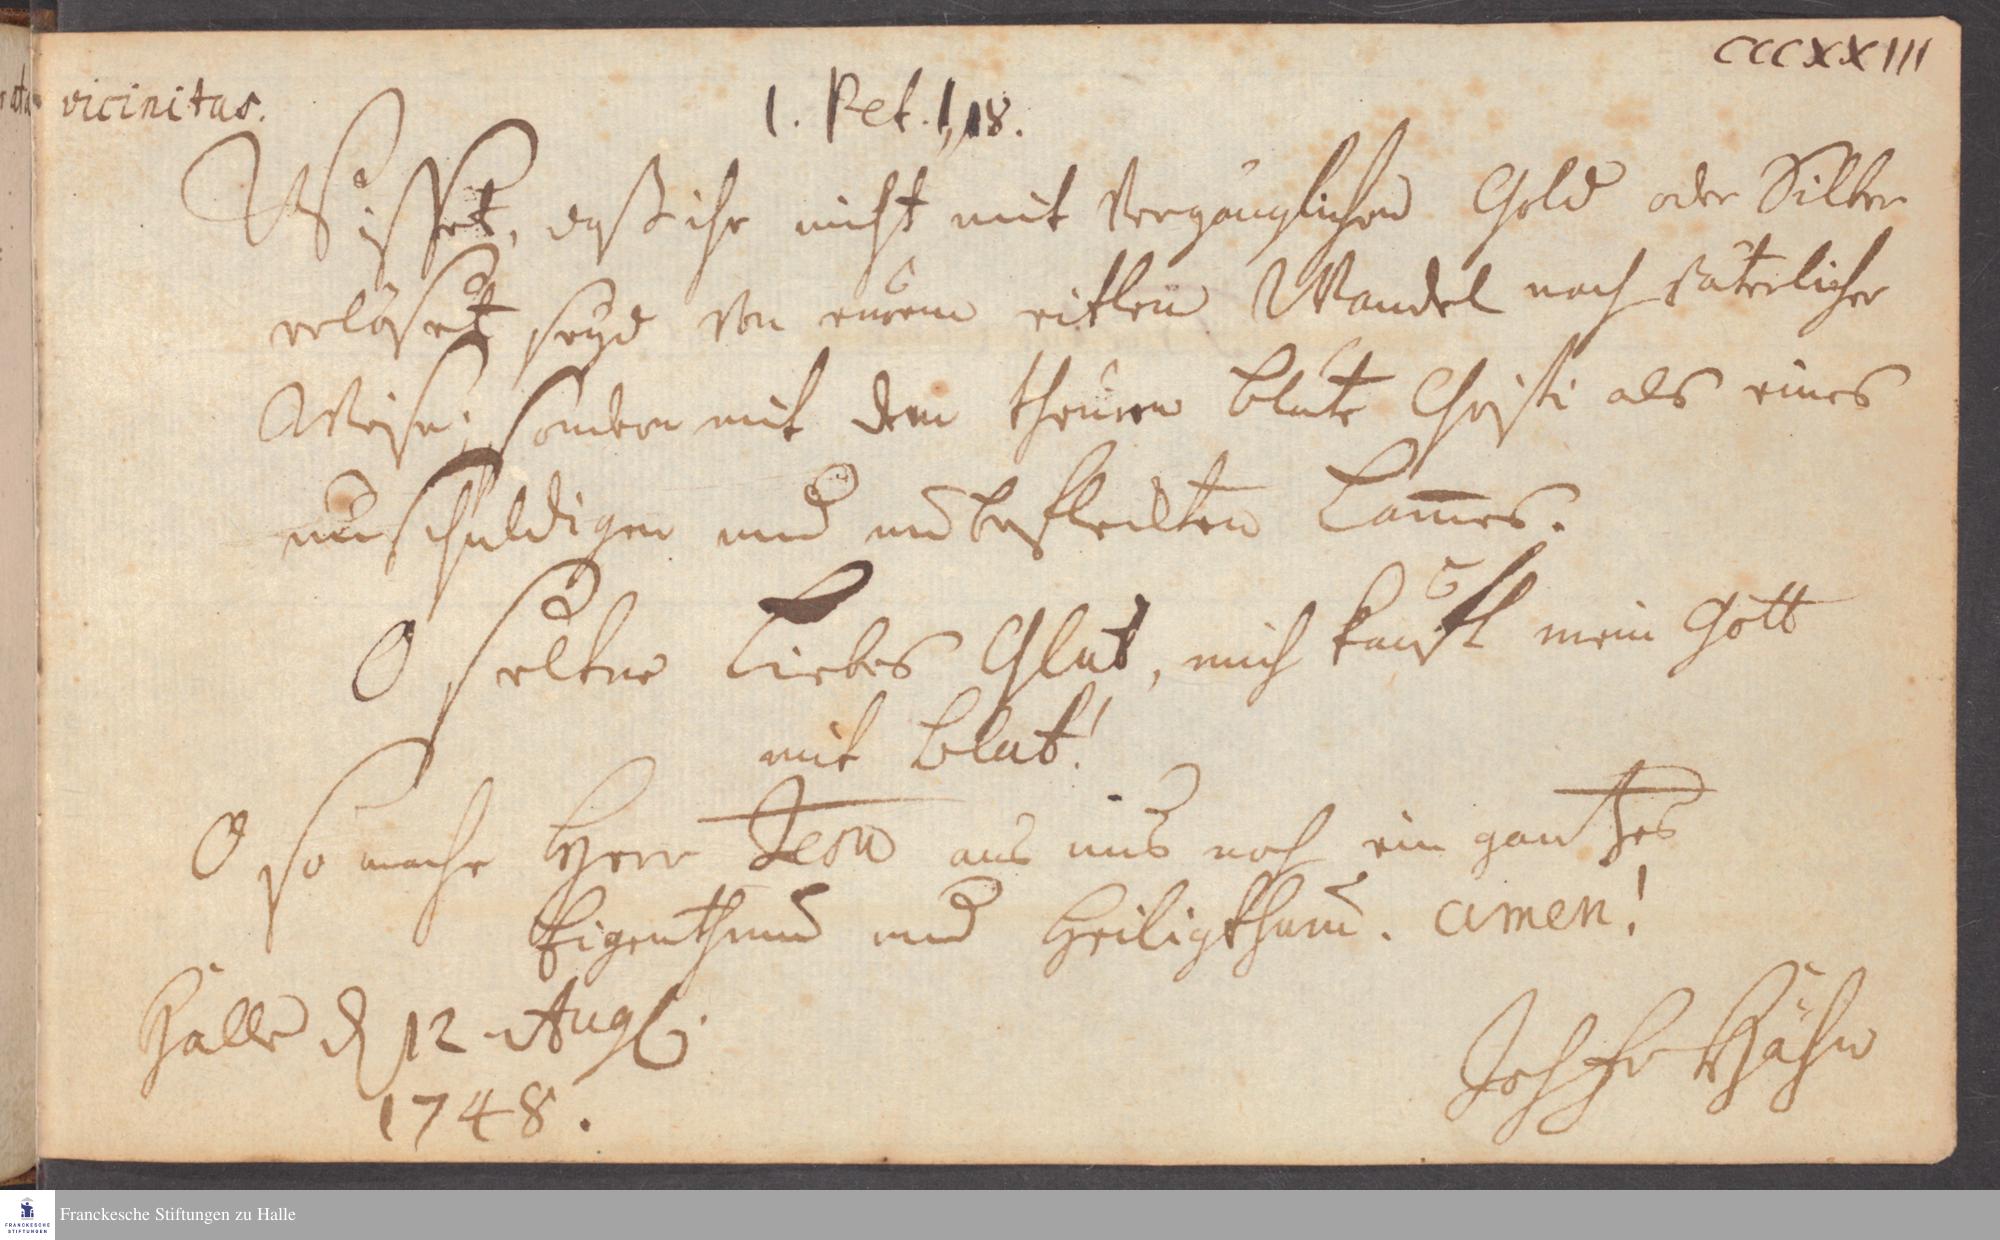 CCCXXIII
vicinitas.
1. Pet. 1, 18.
Wisset, daß ihr nicht mit vergänglichen Gold oder Silber
erlöset seyd von eurem eitlen Wandel nach väterlicher
Weise; sondern mit dem theuren Blute Christi als eines
unschuldigen und unbefleckten Lam̅es.
O seltne Liebes Glut, mich kauft mein Gott
mit Blut!
O so mache Herr Jesu aus uns noch ein gantzes
Eigenthum und Heiligthum. Amen!
Halle d 12 Aug.
1748.
Joh Fr Hähn
Franckesche Stiftungen zu Halle
FRANCKESCHE
STIFTUNGEN